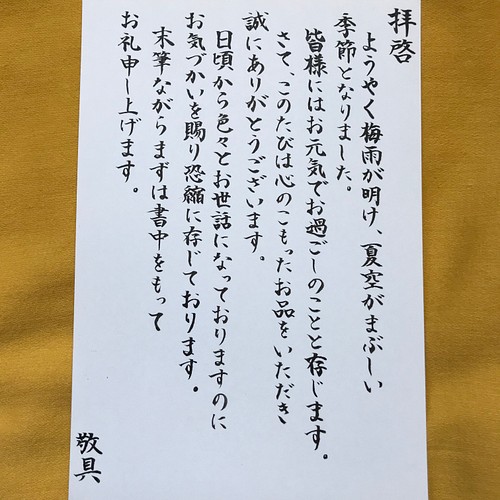 拝啓
ようやく梅雨が明け、夏空がまぶしい
季節となりました。
皆様にはお元気でお過ごしのことと存じます。
さて、このたびは心のこもったお品をいただき
誠にありがとうございます。
日頃から色々とお世話になっておりますのに
お気づかいを賜り恐縮に存じております。
末筆ながらまずは書中をもって
お礼申し上げます。
敬具